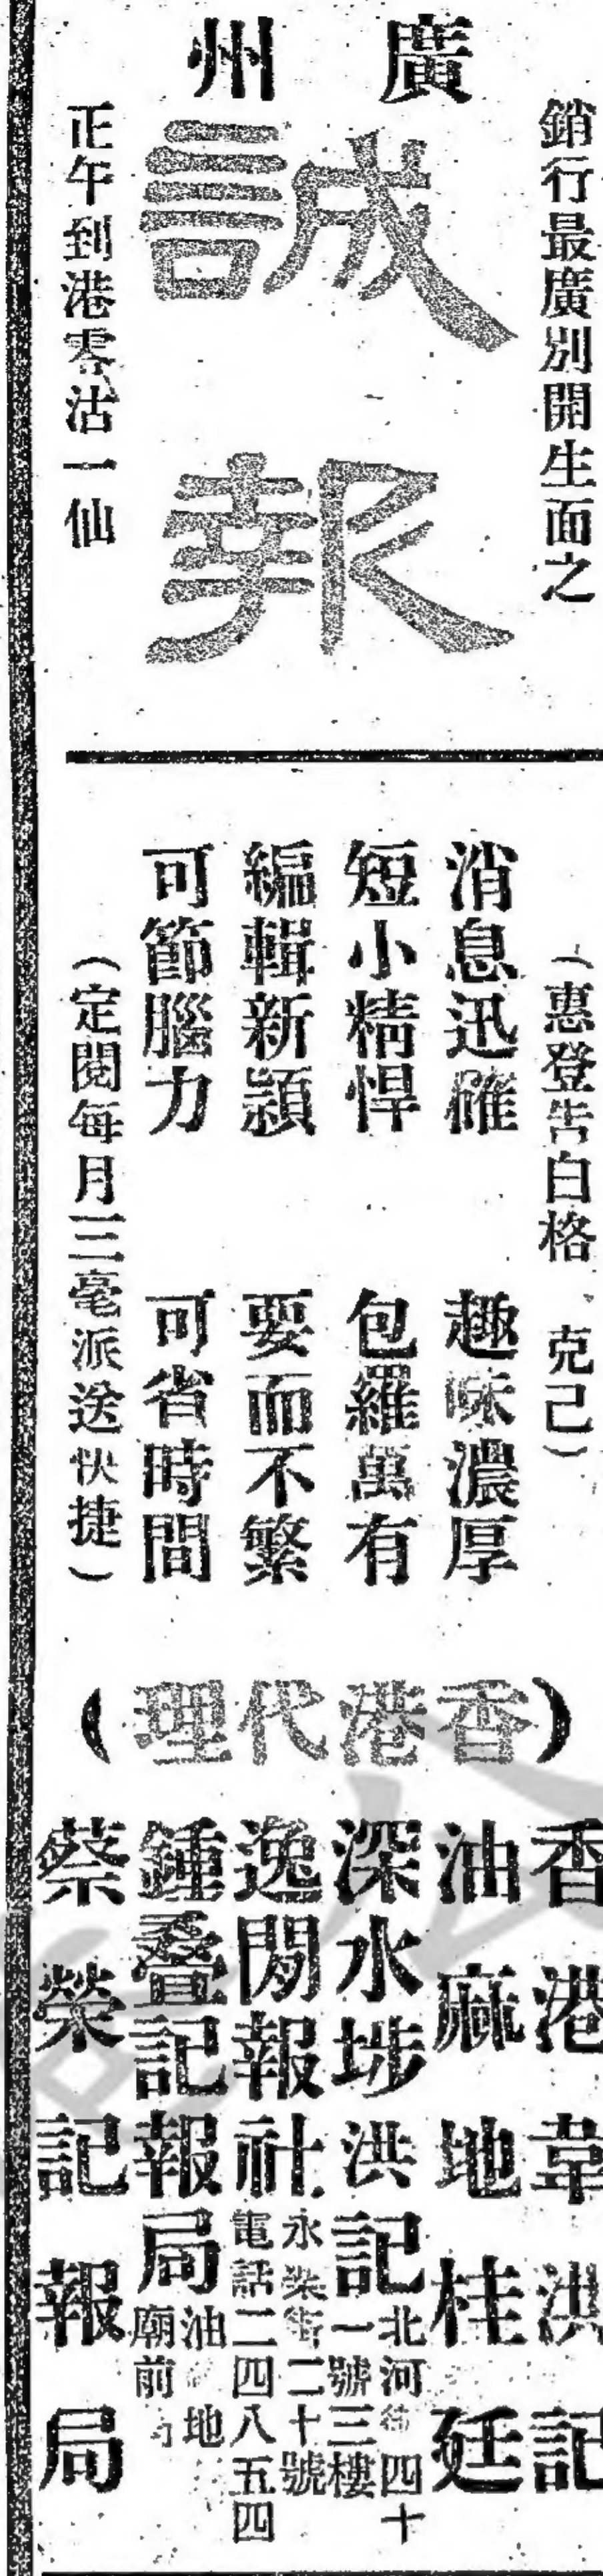 銷行最廣別開生面之
廣州
誠報
正午到港零沽一仙
(惠登告白格 克己)
消息迅確 趣味濃厚
短小精悍 包羅萬有
編輯新穎 要而不繁
可節腦力 可省時間
(定閱每月三毫派送快捷)
(香港代理)
香港韋洪記
油麻地桂廷
深水埗洪記
北河街四十
一號三樓
逸閒報社
永樂街二十號
電話二四八五四
鍾疊記報局
油 地
廟前
蔡榮記報局